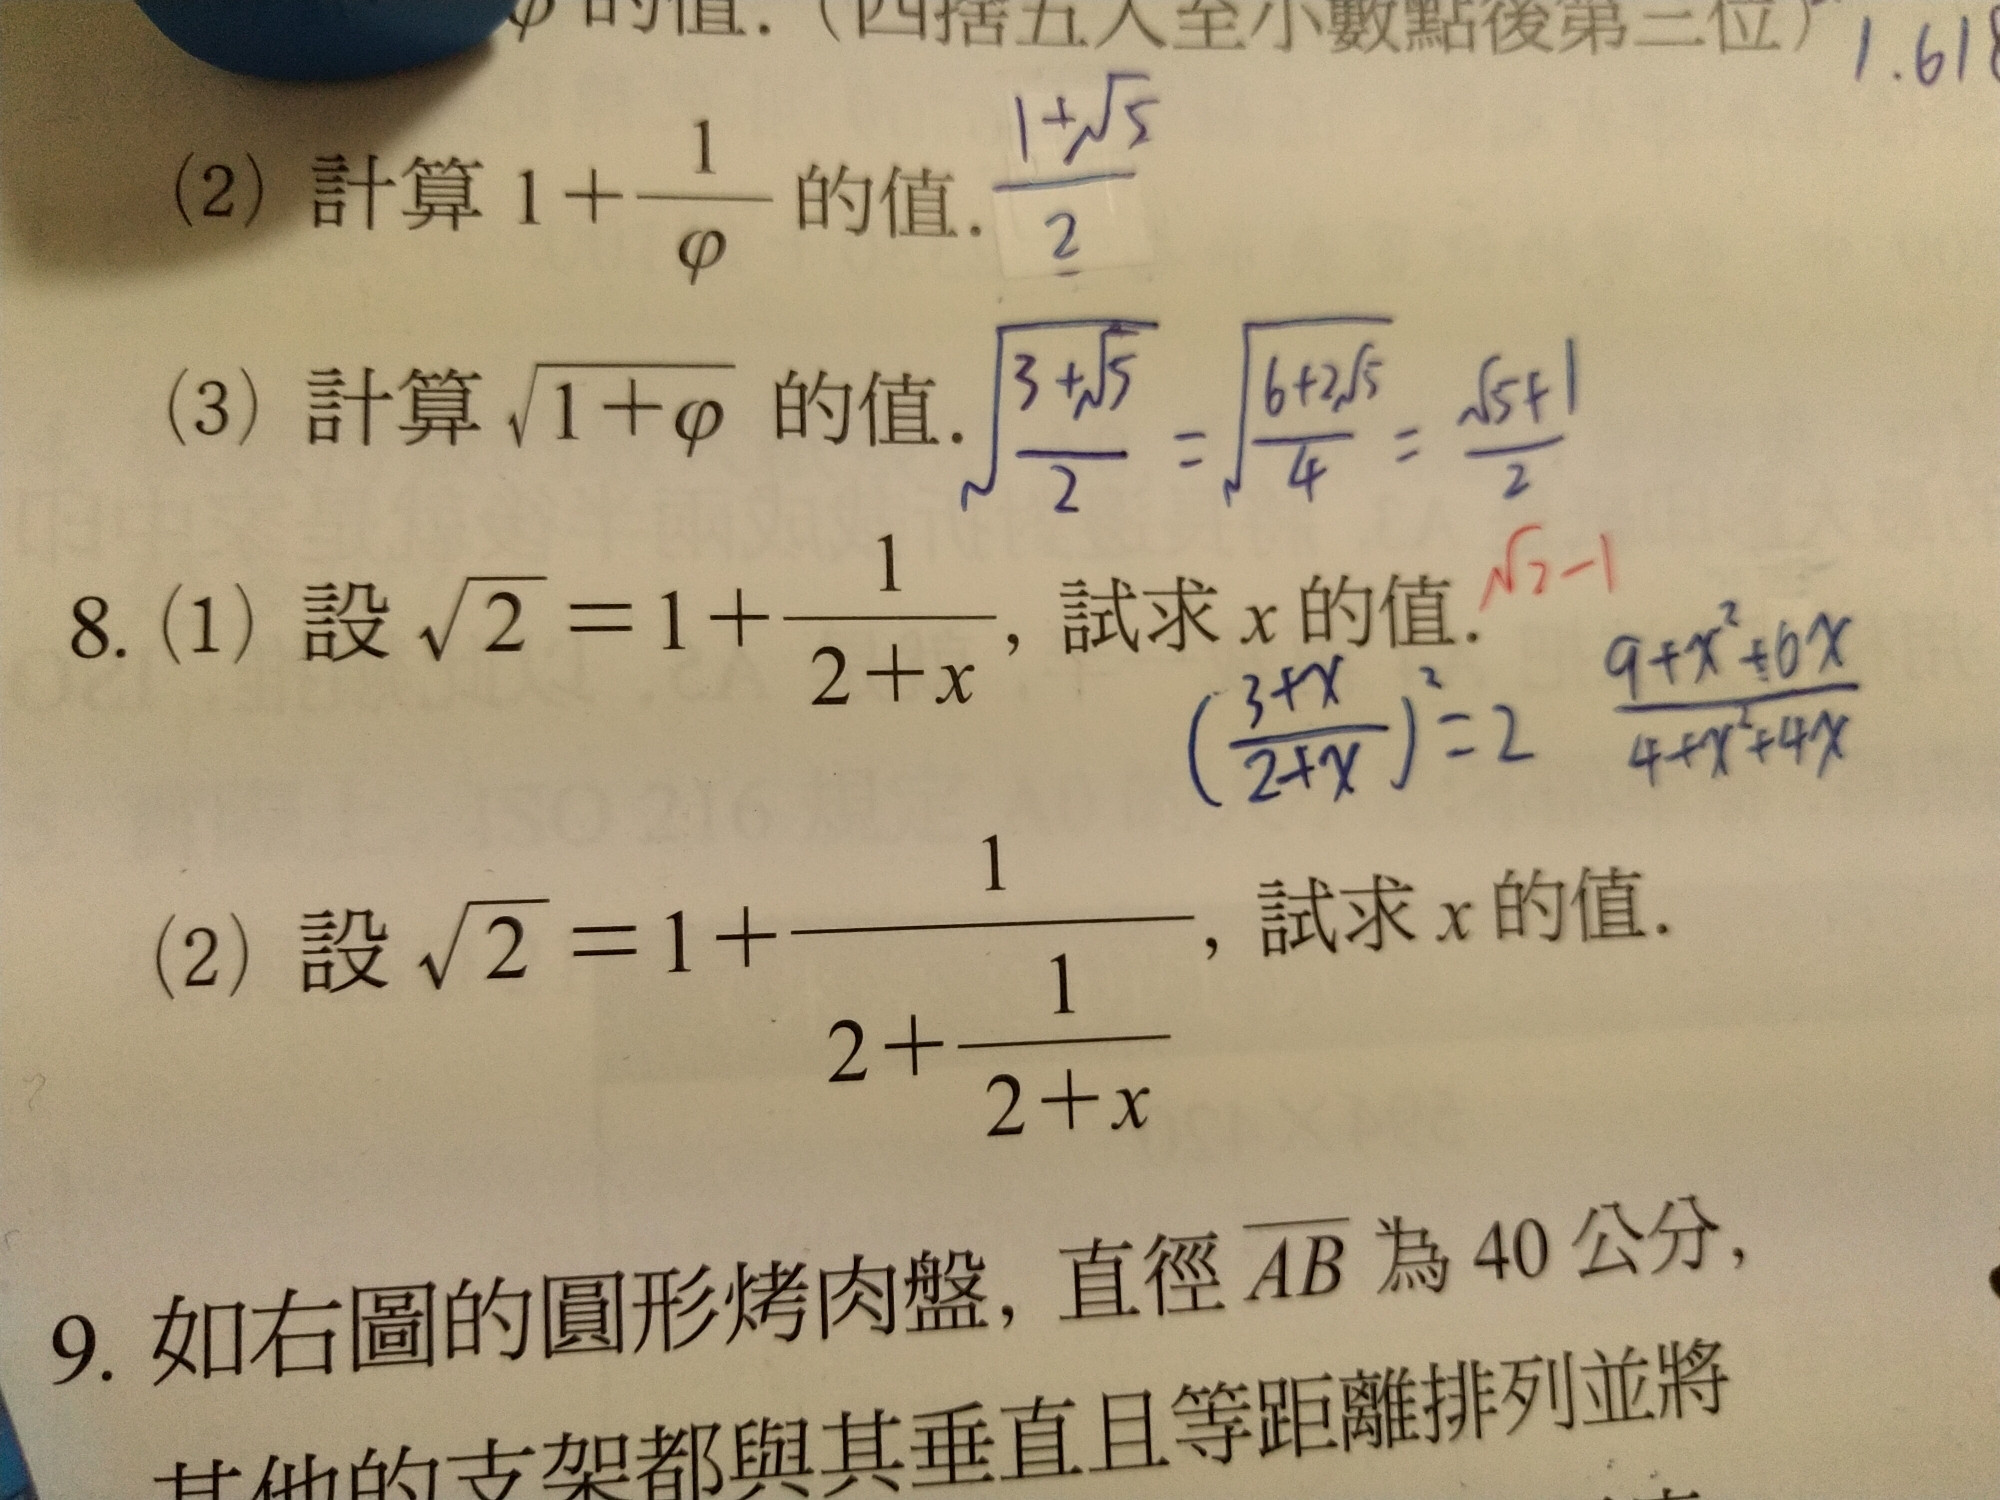 φ 的值.(四捨五入至小數點後第三位) 1.618
(2) 計算 1+1/φ 的值. (1+√5)/2
(3) 計算 √(1+φ) 的值. √((3+√5)/2) = √((6+2√5)/4) = (√5+1)/2
8. (1) 設 √2 = 1+1/(2+x), 試求 x 的值. √2-1
((3+x)/(2+x))² = 2 (9+x²+6x)/(4+x²+4x)
(2) 設 √2 = 1+1/(2+1/(2+x)), 試求 x 的值.
9. 如右圖的圓形烤肉盤, 直徑 AB 為 40 公分,
其他的支架都與其垂直且等距離排列並將